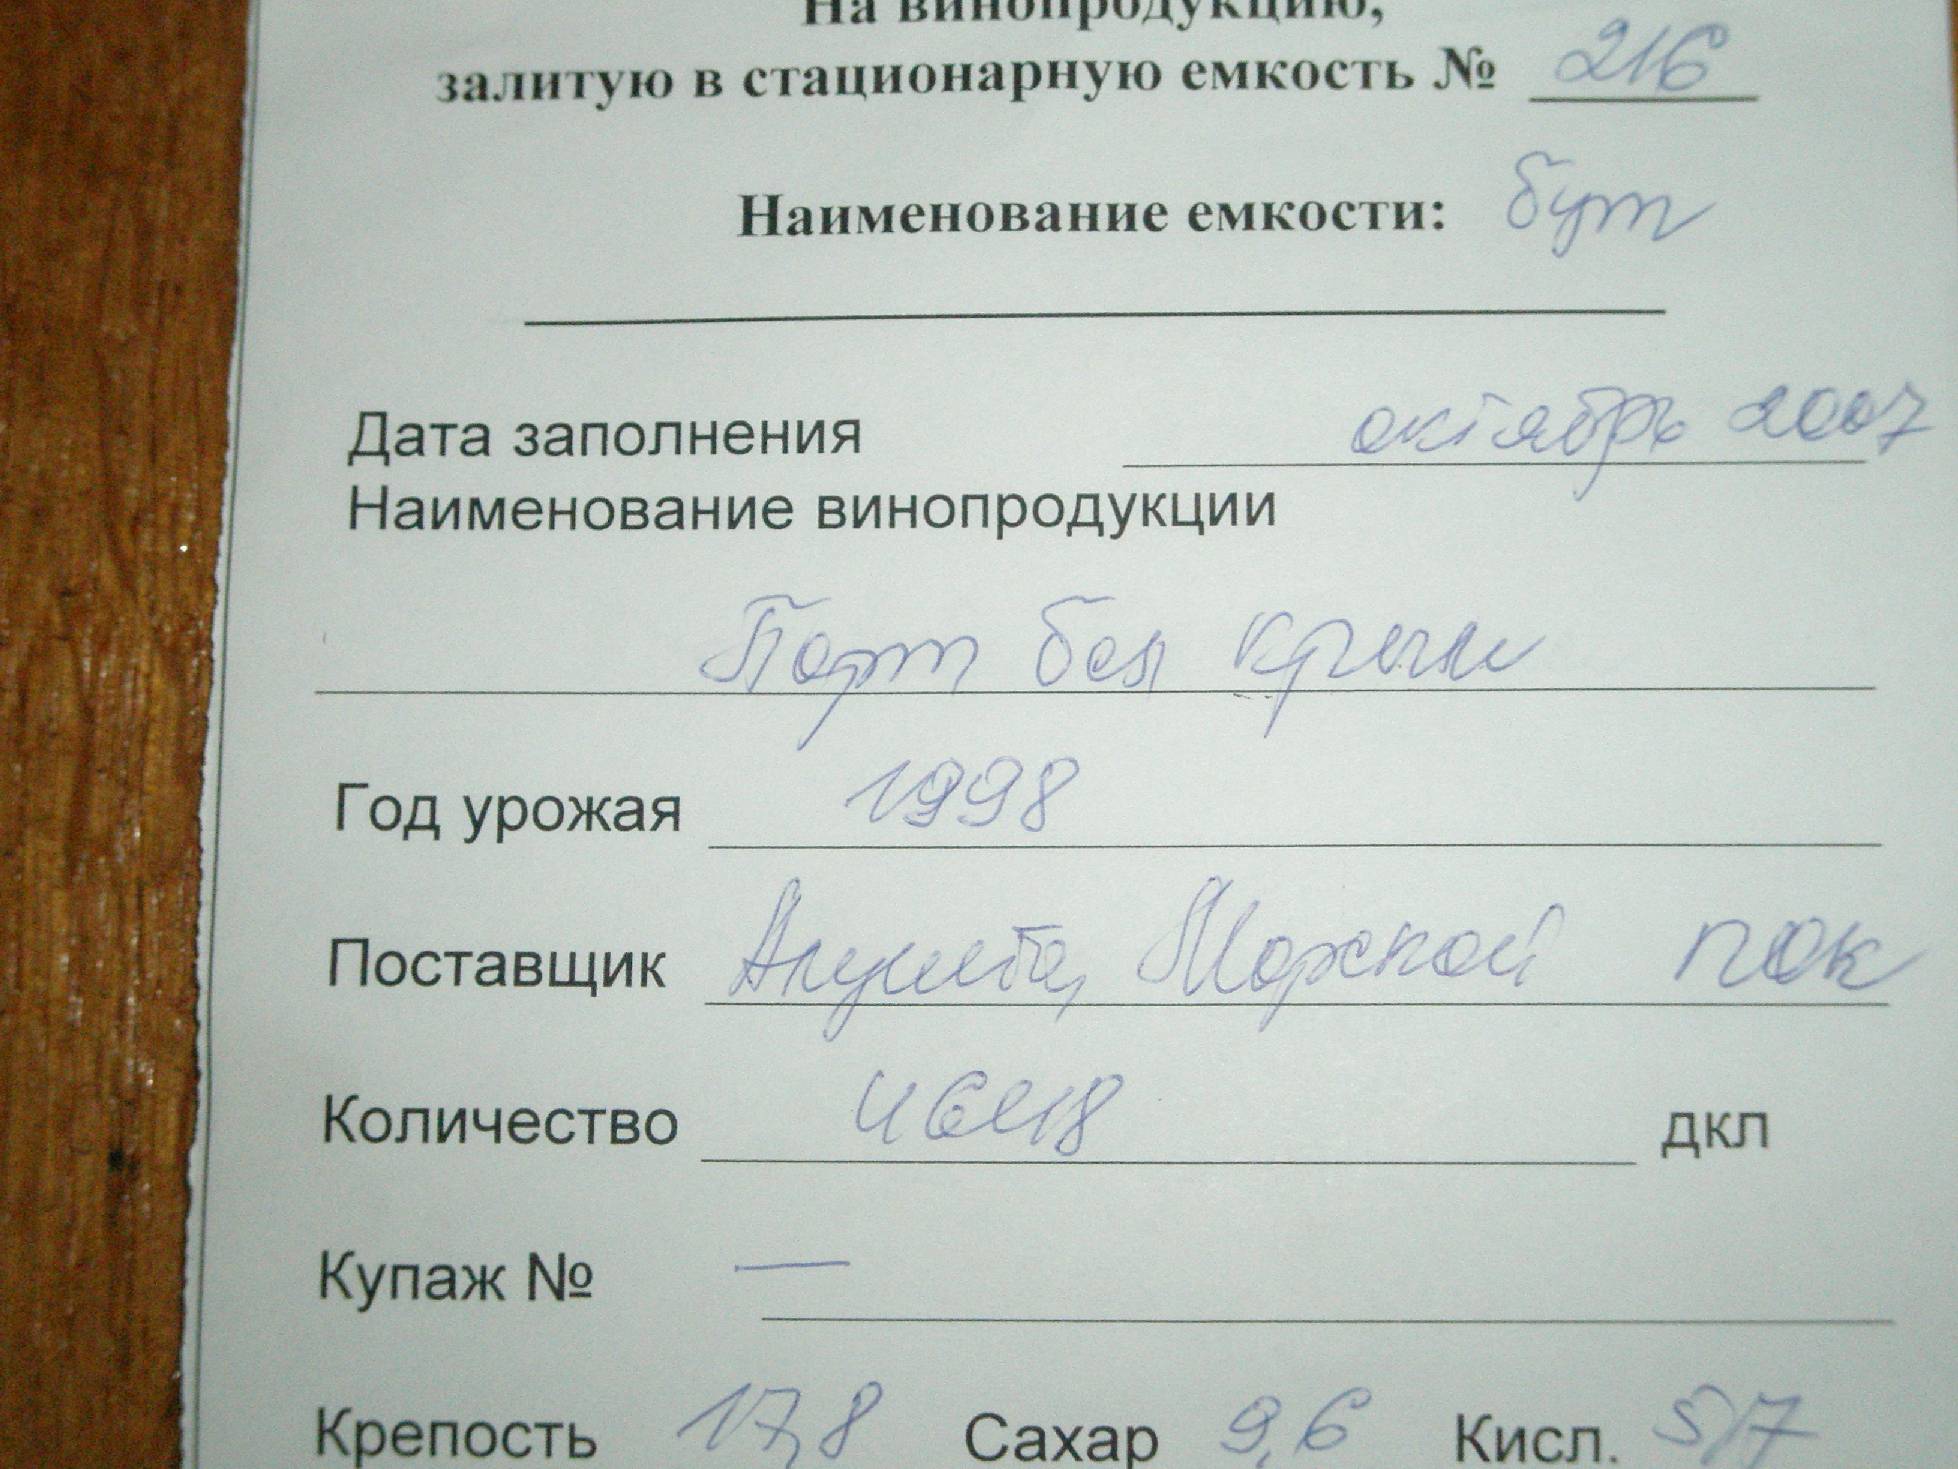 На винопродукцию,
залитую в стационарную емкость № 216
Наименование емкости: бут
Дата заполнения октябрь 2007
Наименование винопродукции
Порт бел Крым
Год урожая 1998
Поставщик Алушта, Морской
Количество дкл
Купаж № —
Крепость 17,8 Сахар 9,6 Кисл. 5,7